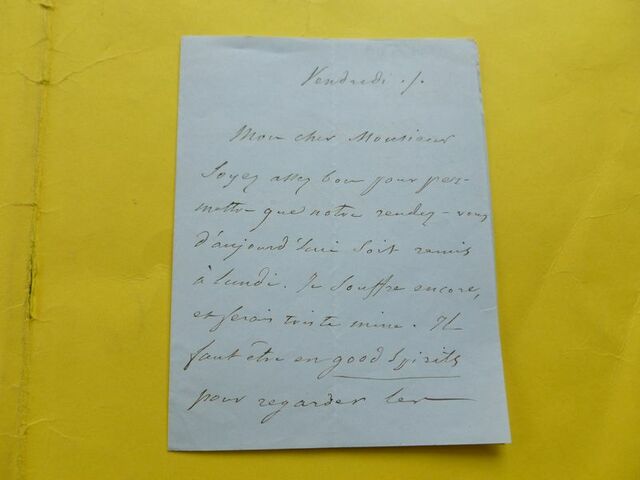 Vendredi ./.
Mon cher Monsieur
Soyez assez bon pour per-
mettre que notre rendez-vous
d'aujourd'hui soit remis
à lundi. Je souffre encore,
et ferais triste mine. Il
faut être en good spirits
pour regarder les